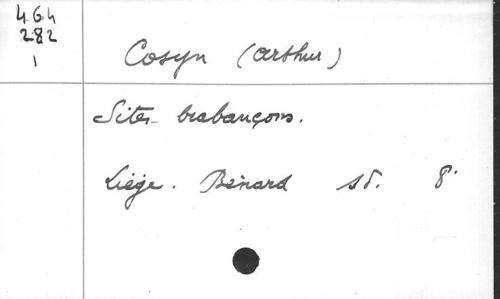 464
282
1
Cosyn (Arthur)
Sites brabançons.
Liège. Bénard sd. 8°